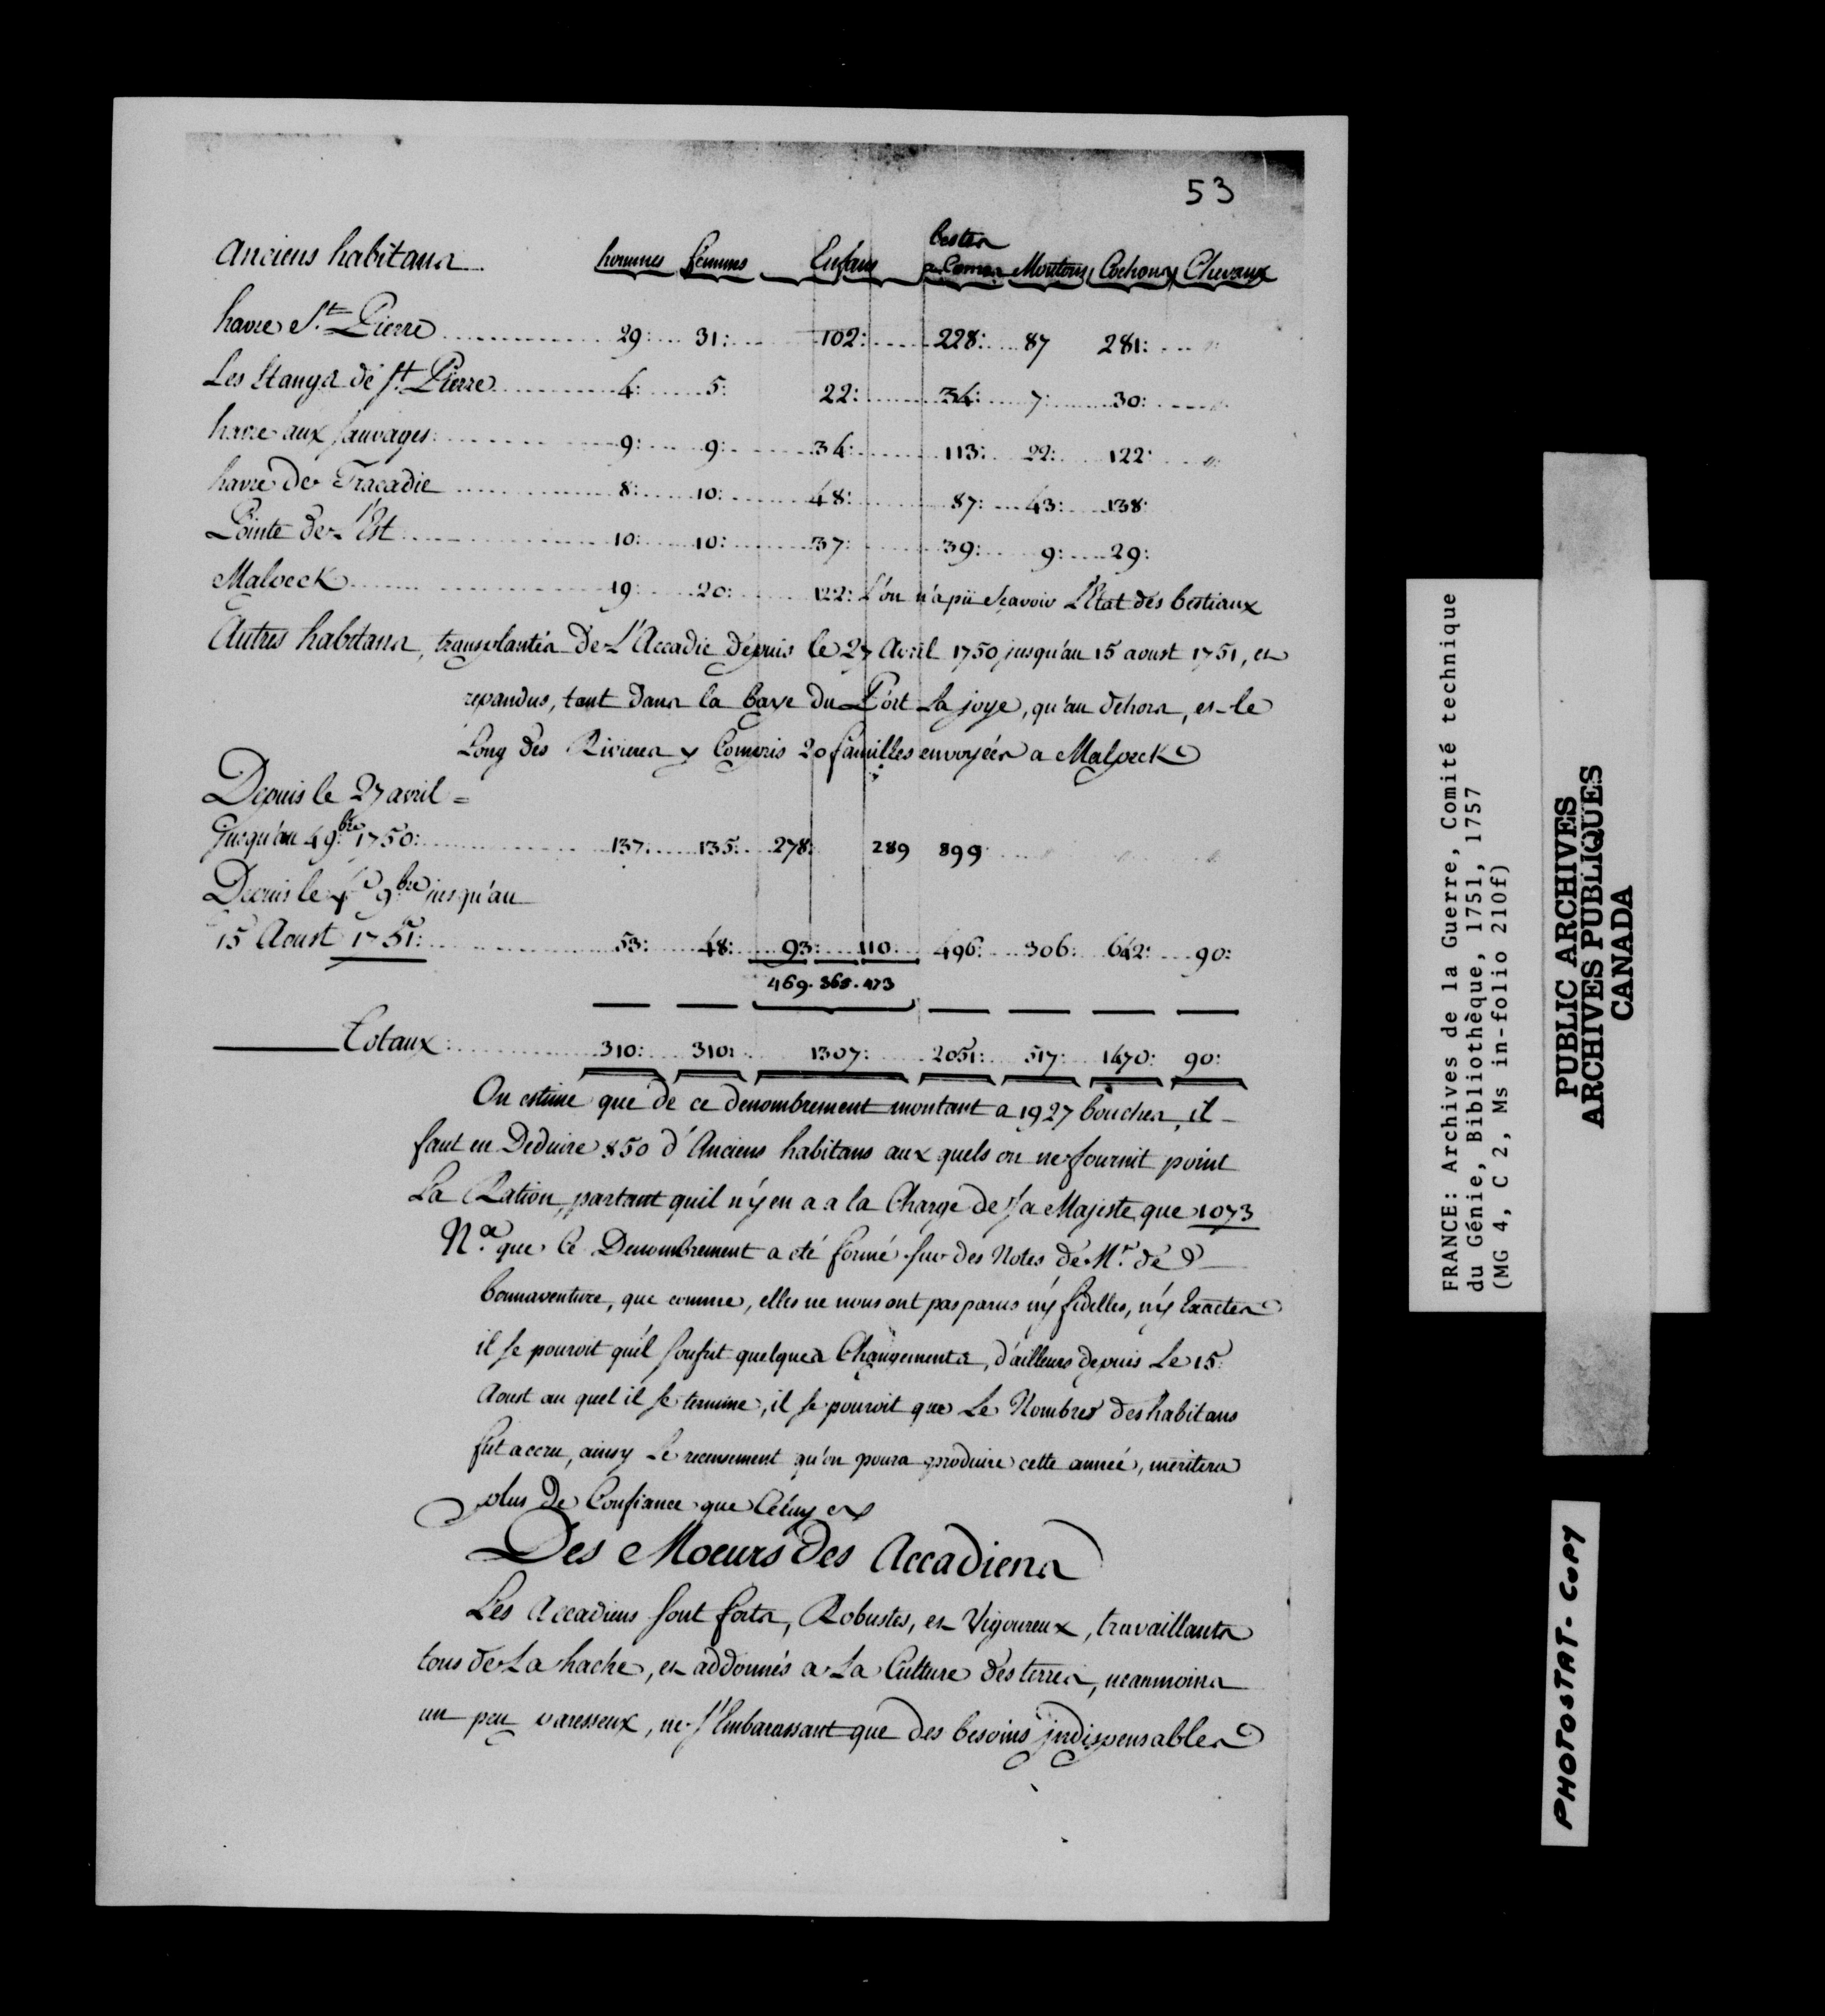 53
Anciens habitans hommes femmes Enfans bestes a Cornes Moutons Cochons Chevaux
havre St. Pierre 29: 31: 102: 228: 87 281:
Les Etangs de St. Pierre 4: 5: 22: 34: 7: 30:
havre aux Sauvages: 9: 9: 34: 113: 22: 122:
havre de Tracadie 8: 10: 48: 87: 43: 138:
Pointe de l'Est 10: 10: 37: 39: 9: 29:
Malpeck 19: 20: 122: L'on n'a pû Sçavoir L'Etat des bestiaux
Autres habitans, transplantés de L'Accadie depuis le 27 Avril 1750 jusqu'au 15 aoust 1751, et
repandus, tant dans la baye du Port la joye, qu'au dehors, et le
Long des Rivieres y Compris 20 familles envoyées a Malpeck
Depuis le 27 avril =
Jusqu'au 4 9.bre 1750: 137: 135: 278: 289 899
Depuis le 4e 9bre jusqu'au
15 Aoust 1751: 53: 48: 93: 110: 496: 306: 642: 90:
469. 365. 473
Totaux: 310: 310: 1307: 2051: 517: 1470: 90:
On estime que de ce denombrement montant a 1927 bouches, il
faut en Deduire 850 d'Anciens habitans aux quels on ne fournit point
La Ration, partant quil n'y en a a la Charge de Sa Majeste que 1073
N.a que Ce Denombrement a été formé sur des Notes de Mr. de
bonnaventure, que comme, elles ne nous ont pas parus ny fidelles, ny Exactes
il se pouroit quil soufrit quelques Changements, d'ailleurs depuis Le 15.
Aoust au quel il se termine, il se pouroit que Le Nombre des habitans
fut accru, ainsy Le recensement qu'on poura produire cette année, meritera
plus de Confiance que Céluy cy
Des Moeurs des Accadiens
Les Accadiens sont forts, Robustes, et Vigoureux, travaillants
tous de La hache, et addonnés a La Culture des terres, neanmoins
un peu paresseux, ne s'Embarassant que des besoins jndispensables
FRANCE: Archives de la Guerre, Comité technique
du Génie, Bibliothèque, 1751, 1757
(MG 4, C 2, Ms in-folio 210f)
PUBLIC ARCHIVES
ARCHIVES PUBLIQUES
CANADA
PHOTOSTAT-COPY